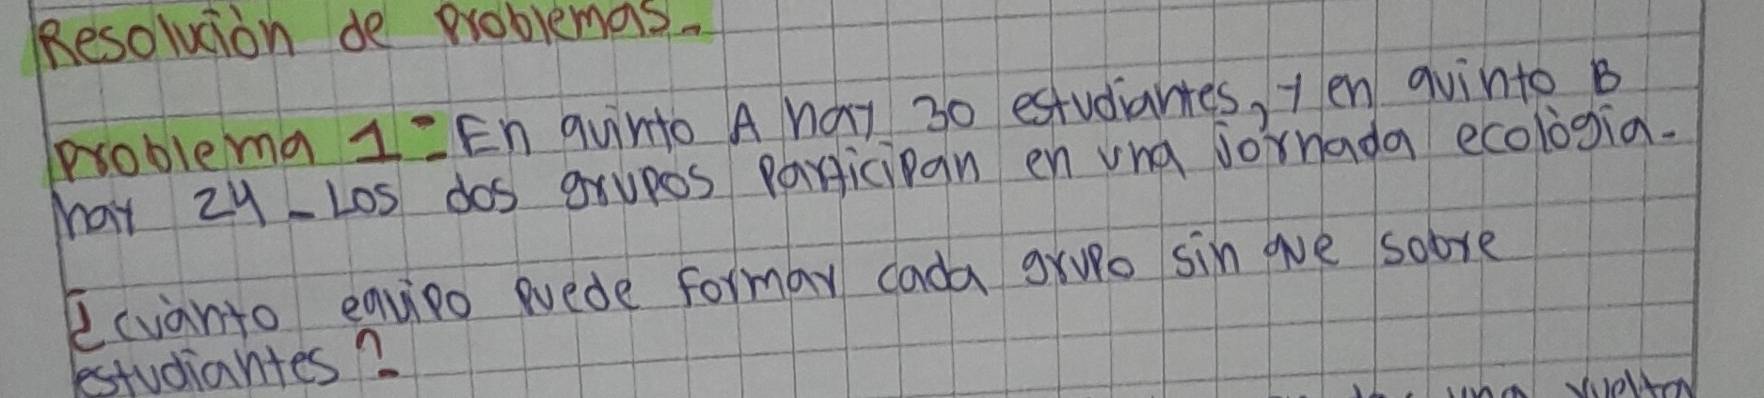 Resolución de Problemas.
Problema 1: En quinto A hay 30 estudiantes, y en quinto B
hay 24. Los dos grupos participan en una jornada ecológia.
¿cuánto equipo puede formar cada grupo sin que sobre
estudiantes?
una vuelta